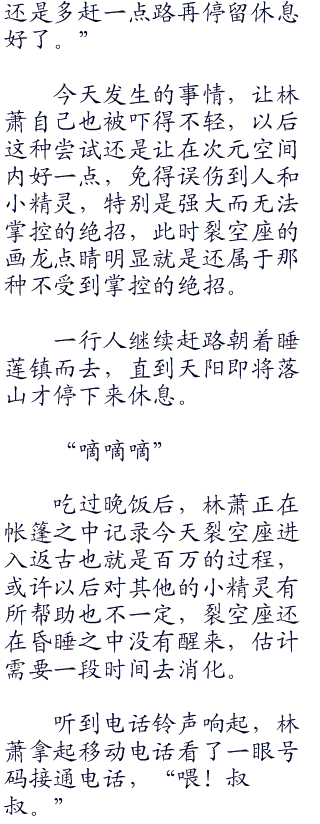 还是多赶一点路再停留休息
好了。”
今天发生的事情，让林
萧自己也被吓得不轻，以后
这种尝试还是让在次元空间
内好一点，免得误伤到人和
小精灵，特别是强大而无法
掌控的绝招，此时裂空座的
画龙点睛明显就是还属于那
种不受到掌控的绝招。
一行人继续赶路朝着睡
莲镇而去，直到天阳即将落
山才停下来休息。
“嘀嘀嘀”
吃过晚饭后，林萧正在
帐篷之中记录今天裂空座进
入返古也就是百万的过程，
或许以后对其他的小精灵有
所帮助也不一定，裂空座还
在昏睡之中没有醒来，估计
需要一段时间去消化。
听到电话铃声响起，林
萧拿起移动电话看了一眼号
码接通电话，“喂！叔
叔。”